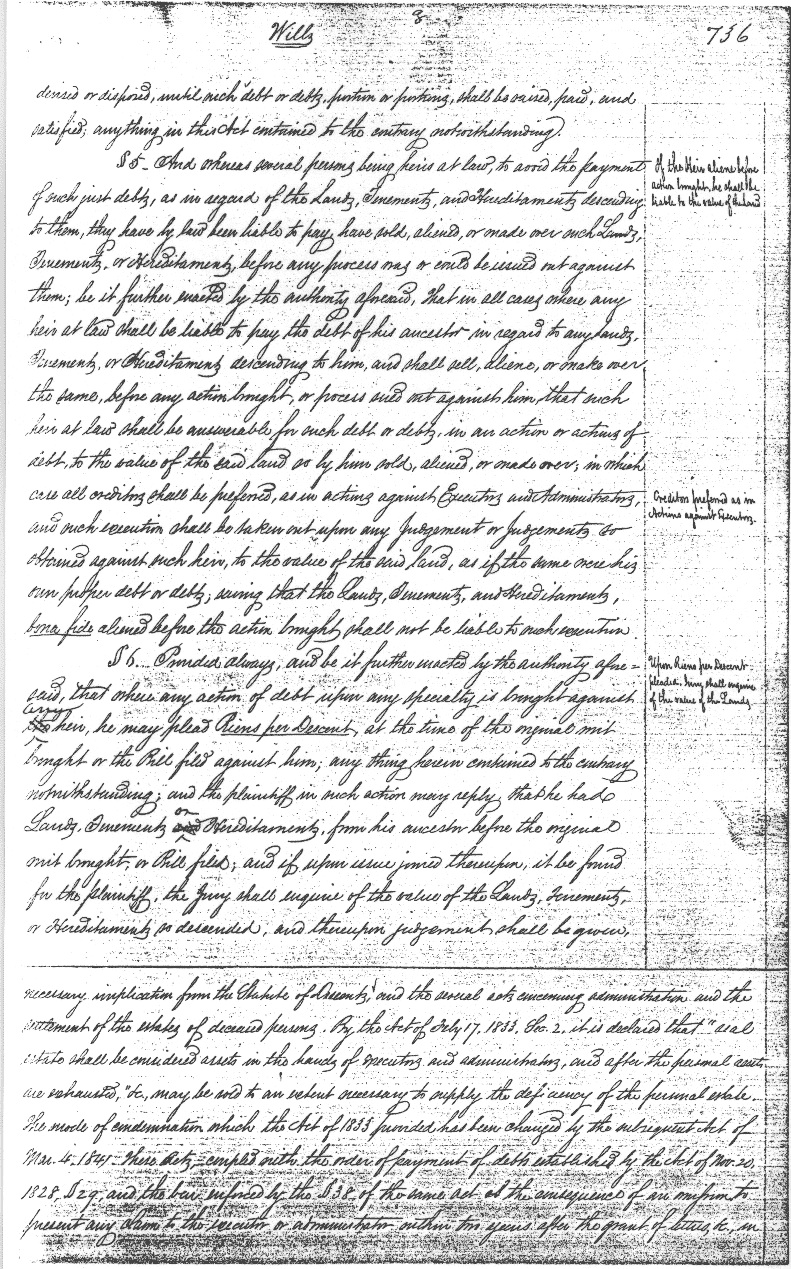 Wills
8
736
devised or disposed, until such debt or debts, portion or portions, shall be raised, paid, and
satisfied; anything in this Act contained to the contrary notwithstanding.
§ 5 - And whereas several persons being heirs at law, to avoid the payment
of such just debts, as in regard of the Lands, Tenements, and Hereditaments descending
to them, they have by law been liable to pay, have sold, aliened, or made over such Lands,
Tenements, or Hereditaments, before any process was or could be issued out against
them; be it further enacted by the authority aforesaid, That in all cases where any
heir at law shall be liable to pay the debt of his ancestor in regard to any lands,
Tenements, or Hereditaments descending to him, and shall sell, aliene, or make over
the same, before any action brought, or process sued out against him, that such
heir at law shall be answerable for such debt or debts, in an action or actions of
debt, to the value of the said land so by him sold, aliened, or made over; in which
case all creditors shall be preferred, as in actions against Executors and Administrators,
and such execution shall be taken out upon any Judgement or Judgements so
obtained against such heir, to the value of the said land, as if the same were his
own proper debt or debts; saving that the Lands, Tenements, and Hereditaments,
bona fide aliened before the action brought shall not be liable to such execution.
§ 6. Provided always, and be it further enacted by the authority afore=
said, that where any action of debt upon any specialty is brought against
any
the heir, he may plead Riens per Descent, at the time of the original writ
brought or the Bill filed against him; any thing herein contained to the contrary
notwithstanding; and the plaintiff in such action may reply that he had
or
Lands, Tenements and Hereditaments, from his ancestor before the original
writ brought, or Bill filed; and if upon issue joined thereupon, it be found
for the plaintiff, the Jury shall enquire of the value of the Lands, Tenements,
or Hereditaments so descended, and thereupon judgement shall be given,
If the Heir aliene before
action brought, he shall be
liable to the value of the land
Creditors preferred as in
Actions against Executors.
Upon Riens per Descent
pleaded, Jury shall enquire
of the value of the Lands
necessary implication from the Statute of Descents, and the several acts concerning administration and the
settlement of the estates of deceased persons. By the Act of July 17, 1833, Sec. 2, it is declared that "real
estate shall be considered assets in the hands of executors and administrators, and after the personal assets
are exhausted," &c., may be sold to an extent necessary to supply the deficiency of the personal estate.
The mode of condemnation which the Act of 1833 provided has been changed by the subsequent Act of
Mar. 4, 1841. These Acts - coupled with the order of payment of debts established by the Act of Nov. 20,
1828, § 29, and the bar enforced by the § 38 of the same act as the consequence of an omission to
present any claim to the executor or administrator within two years after the grant of letters, &c, in